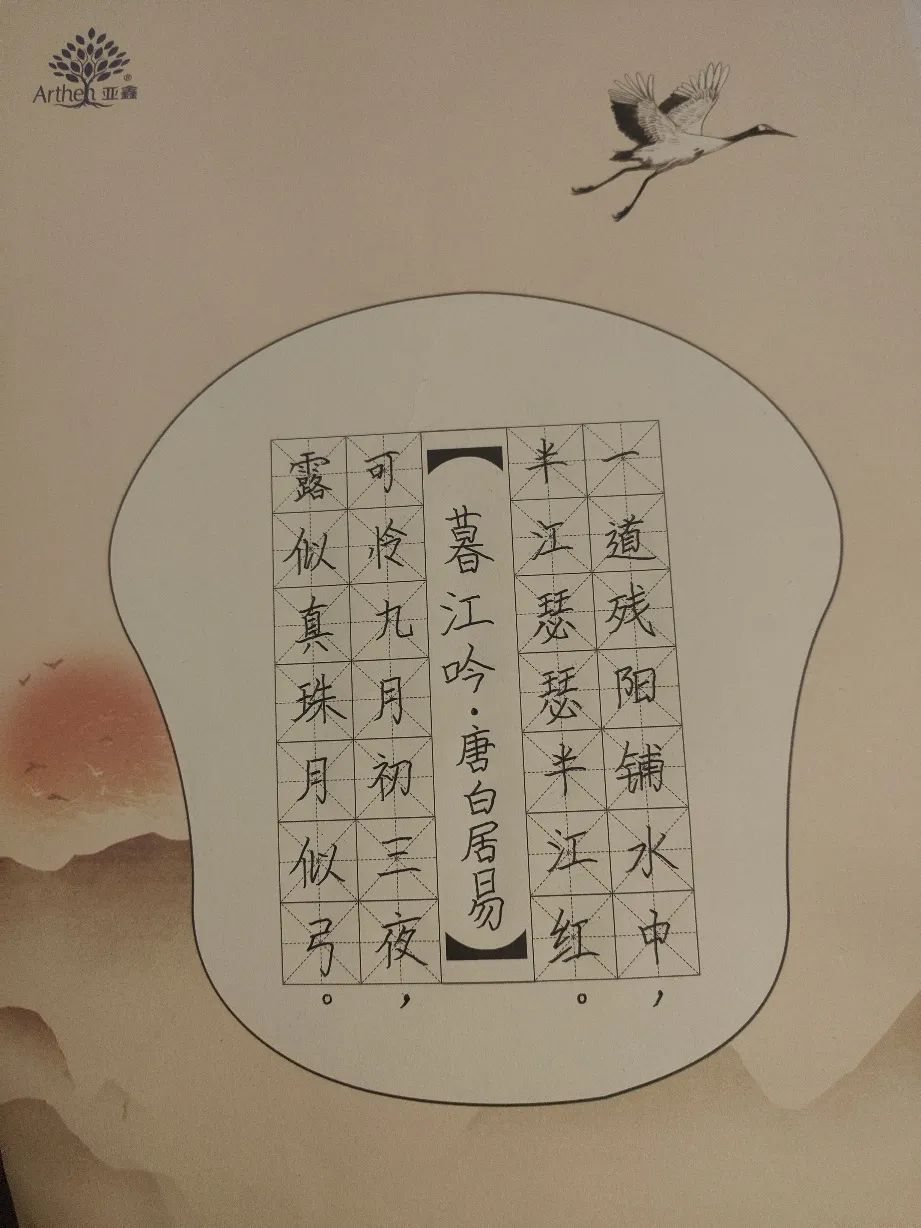 Arthen 亚鑫®
一道残阳铺水中，
半江瑟瑟半江红。
暮江吟·唐白居易
可怜九月初三夜，
露似真珠月似弓。